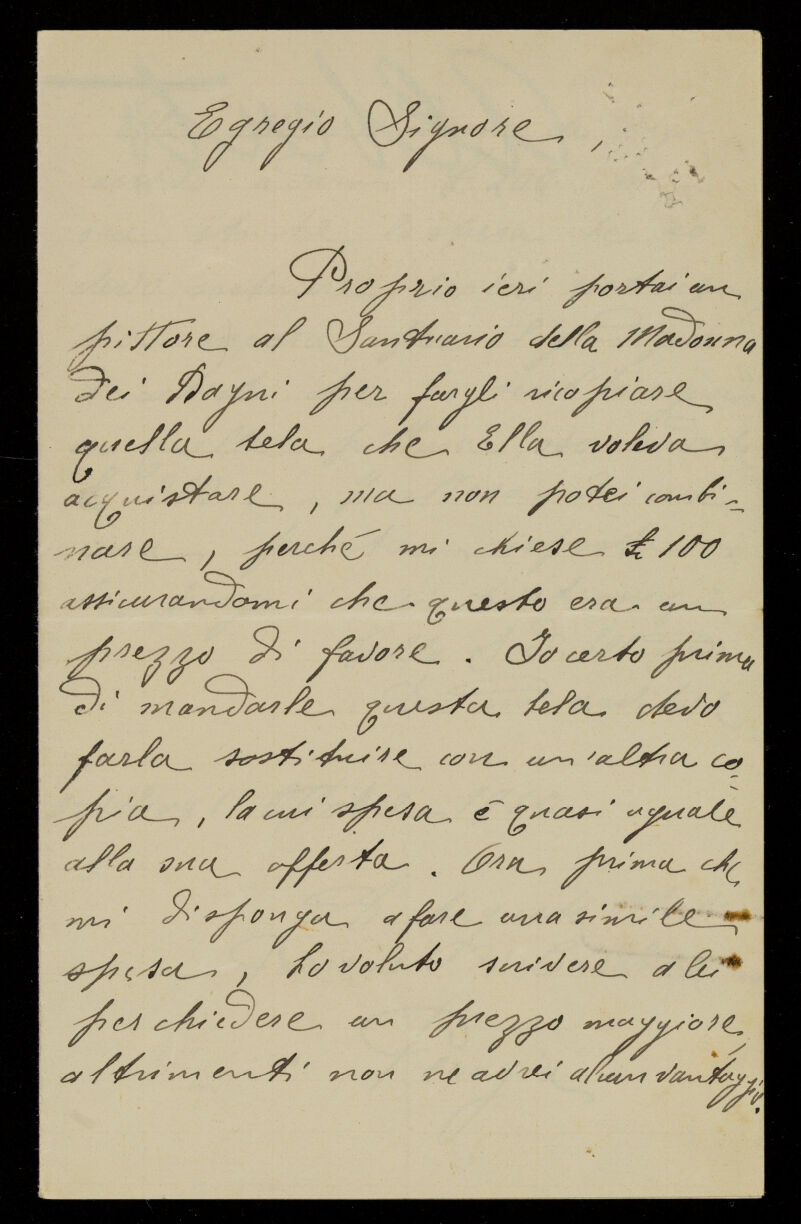 Egregio Signore,
Proprio ieri portai un
pittore al Santuario della Madonna
dei Bagni per fargli ricopiare
quella tela che Ella voleva
acquistare, ma non potei combi=
nare, perché mi chiese £ 100
assicurandomi che questo era un
prezzo di favore. Io certo prima
di mandarle questa tela devo
farla sostituire con un'altra co=
pia, la cui spesa è quasi uguale
alla sua offerta. Ora prima che
mi disponga a fare una simile
spesa, ho voluto scrivere a lei
per chiedere un prezzo maggiore,
altrimenti non ne avrei alcun vantaggio.